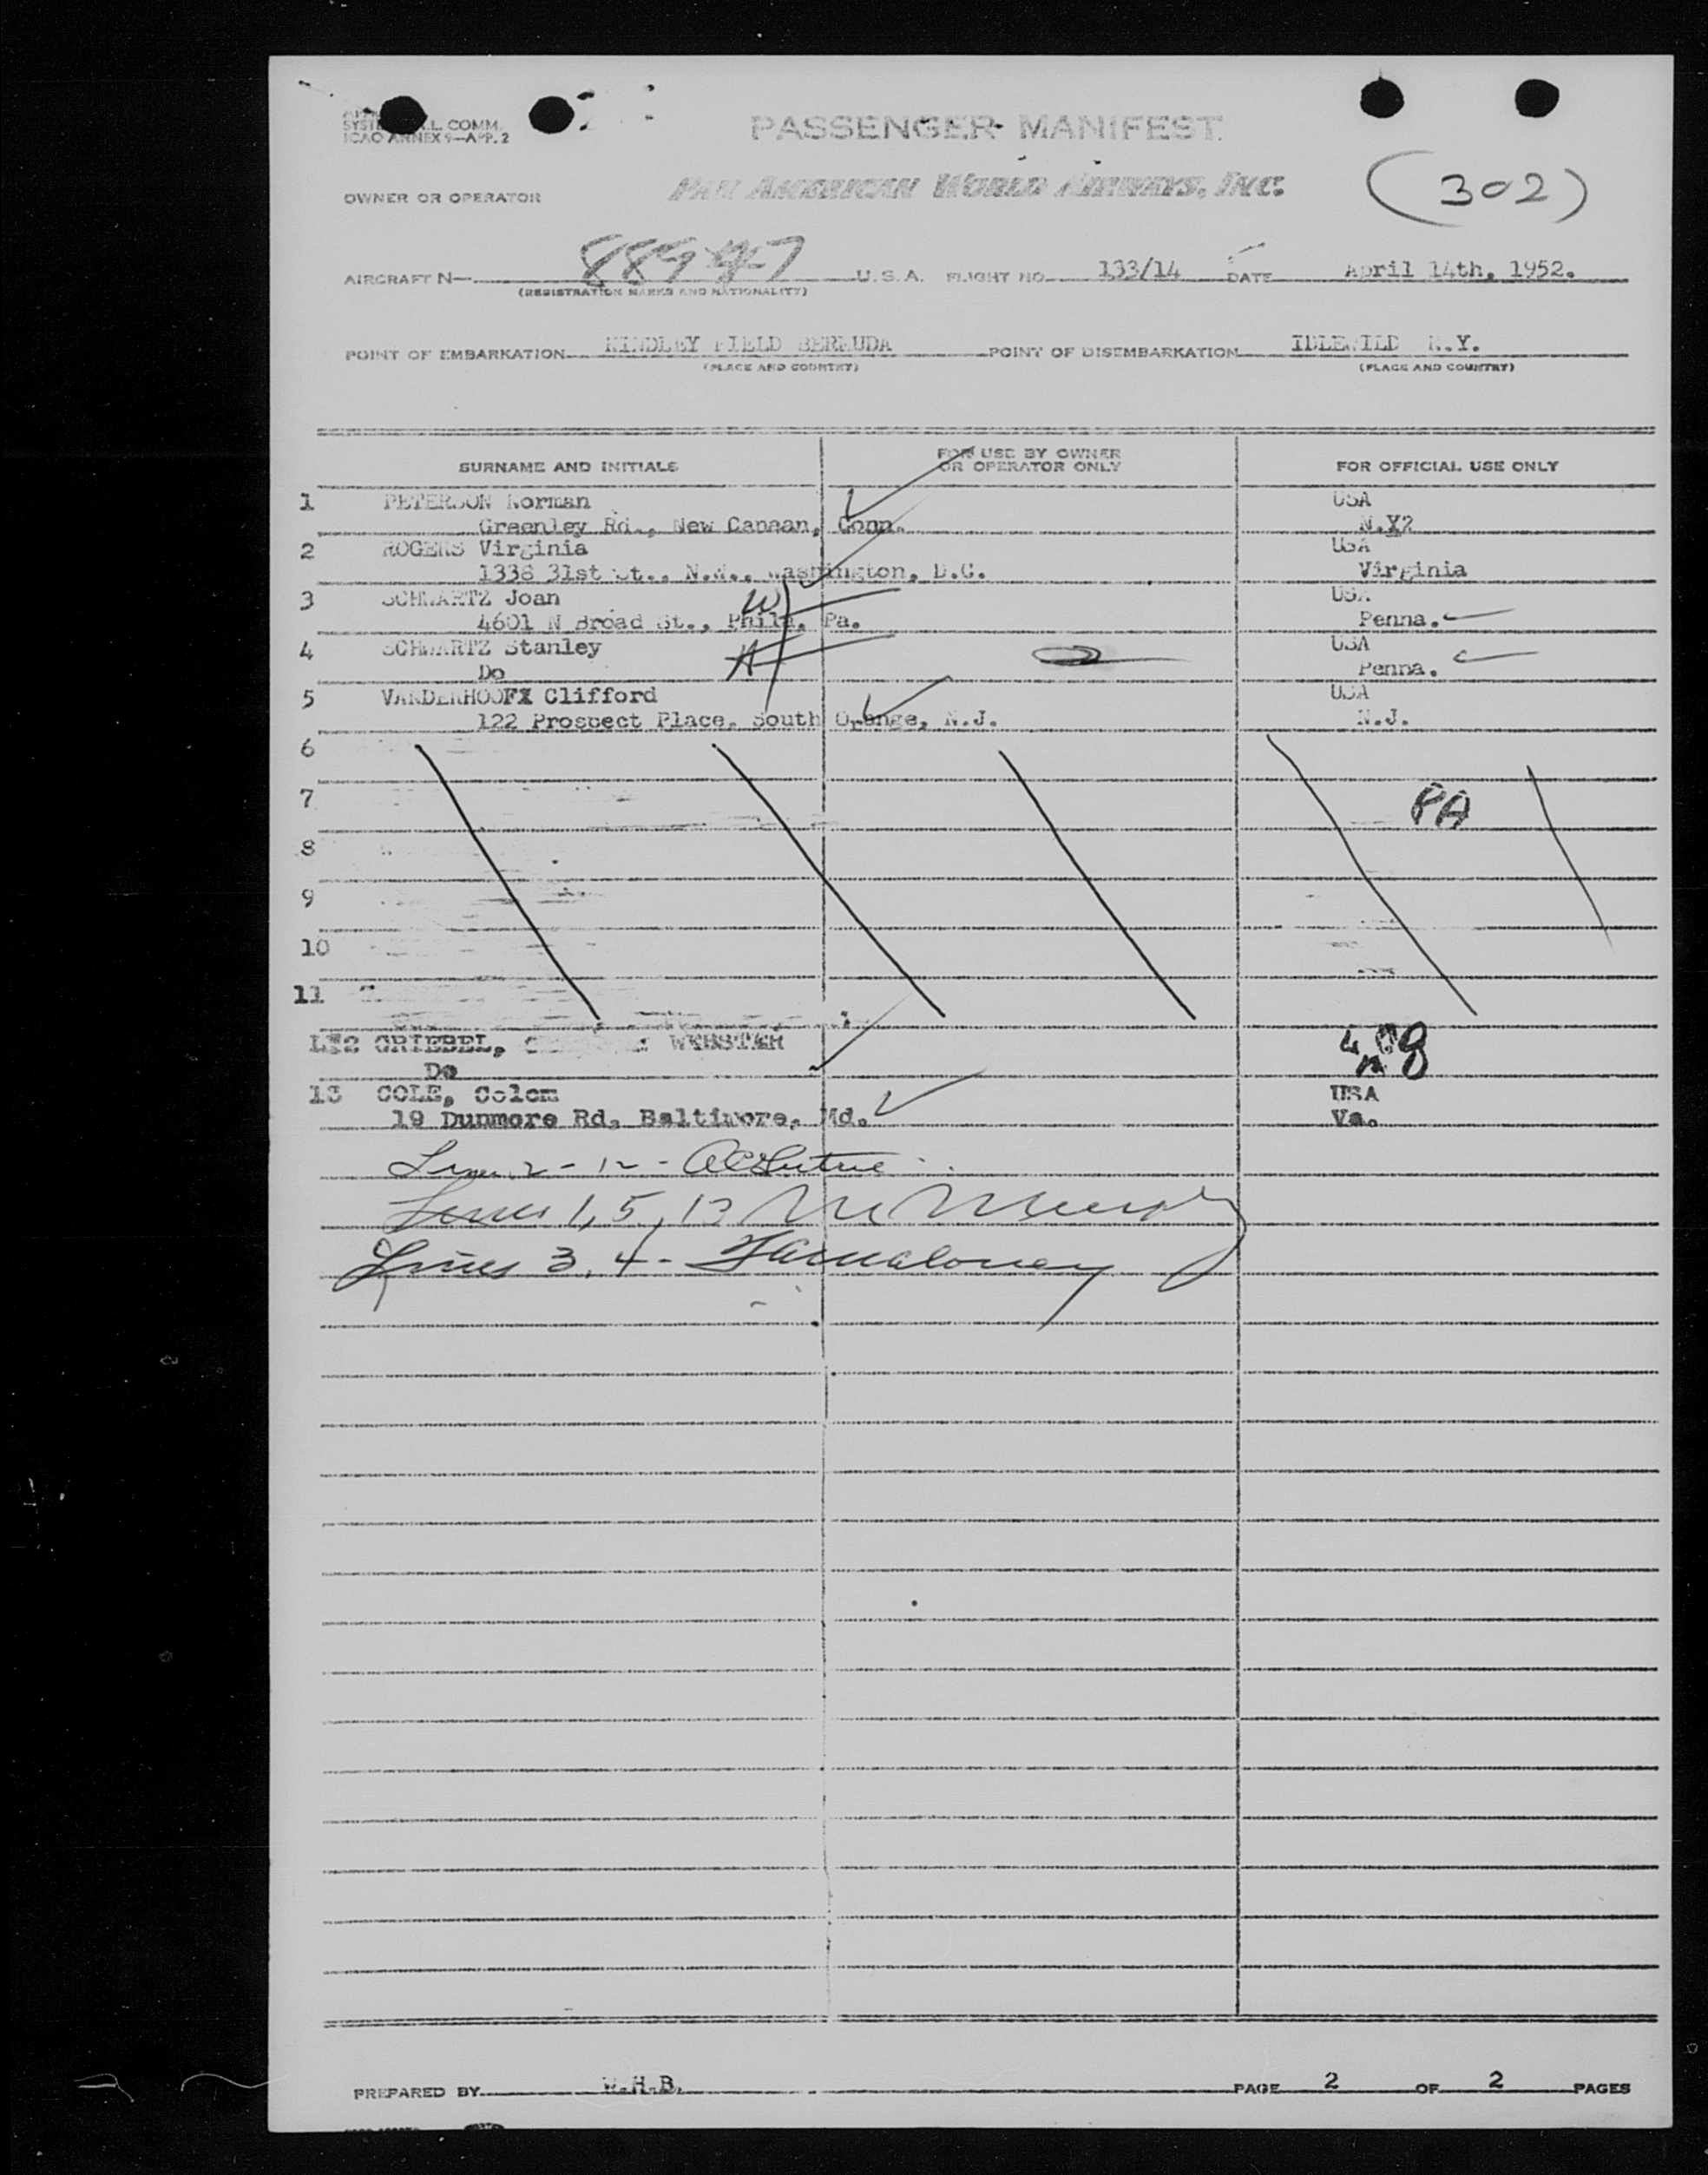 L. COMM.
ICAO ANNEX 9—APP. 2
PASSENGER MANIFEST
OWNER OR OPERATOR
PAN AMERICAN WORLD AIRWAYS, INC.
(302)
AIRCRAFT N— U.S.A. FLIGHT NO. 133/14 DATE April 14th, 1952.
(REGISTRATION MARKS AND NATIONALITY)
POINT OF EMBARKATION KINDLEY FIELD BERMUDA POINT OF DISEMBARKATION IDLEWILD N.Y.
(PLACE AND COUNTRY) (PLACE AND COUNTRY)
SURNAME AND INITIALS FOR USE BY OWNER OR OPERATOR ONLY FOR OFFICIAL USE ONLY
1 PETERSON Norman USA
Greenley Rd., New Canaan, Conn. N.Y2
2 ROGERS Virginia USA
1338 31st St., N.W., Washington, D.C. Virginia
3 SCHWARTZ Joan W USA
4601 N Broad St., Phila, Pa. Penna.
4 SCHWARTZ Stanley USA
Do H Penna.
5 VANDERHOOFX Clifford USA
122 Prospect Place, South Orange, N.J. N.J.
6
7 PA
8
9
10
11
12 GRIEBEL, WEBSTER
Do
13 COLE, Colem USA
19 Dunmore Rd, Baltimore, Md. Va.
Lines 2 - 12 -
Lines 1, 5, 13
Lines 3, 4 -
PREPARED BY W.H.B. PAGE 2 OF 2 PAGES